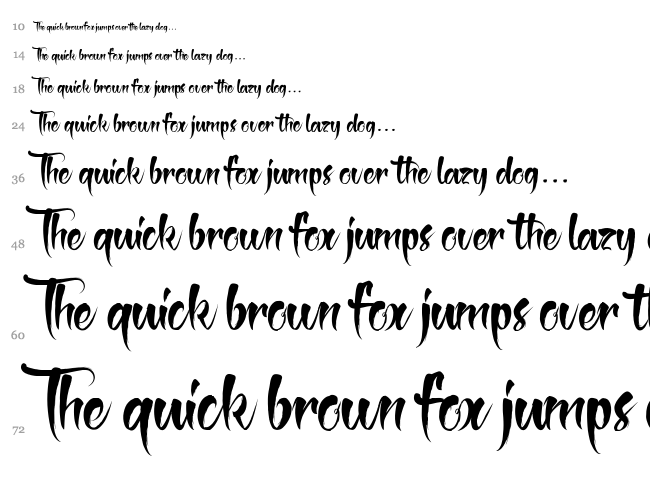 10 The quick brown fox jumps over the lazy dog...
14 The quick brown fox jumps over the lazy dog...
18 The quick brown fox jumps over the lazy dog...
24 The quick brown fox jumps over the lazy dog...
36 The quick brown fox jumps over the lazy dog...
48 The quick brown fox jumps over the lazy
60 The quick brown fox jumps over th
72 The quick brown fox jumps